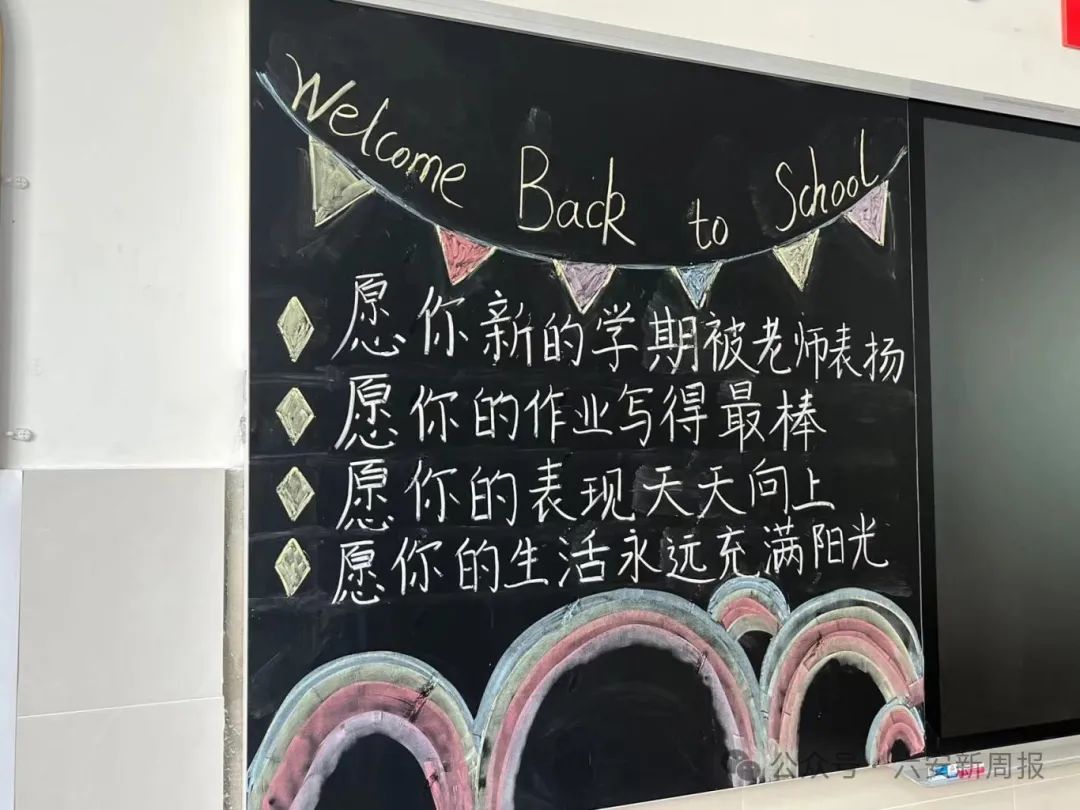 Welcome Back to School
愿你新的学期被老师表扬
愿你的作业写得最棒
愿你的表现天天向上
愿你的生活永远充满阳光
公众号·六安新周报